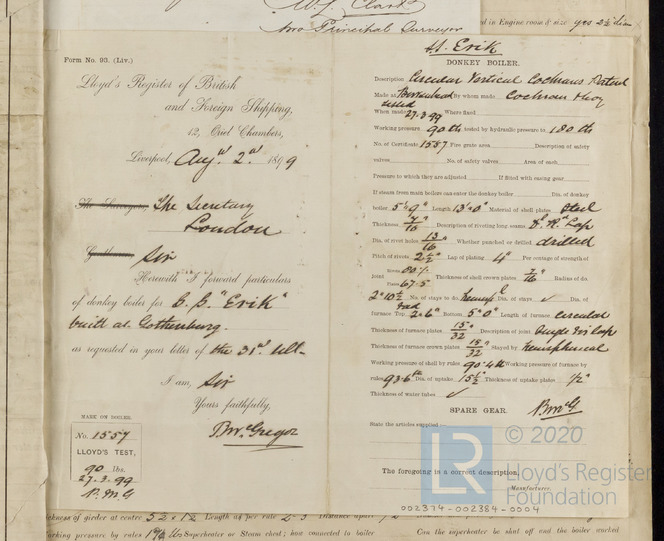 W. S. Clark
pro Principal Surveyor
ed in Engine room & size yes 2½ dia
Form No. 93. (Liv.)
Lloyd's Register of British
and Foreign Shipping,
12, Oriel Chambers,
Liverpool, Augst 2nd 1899
The Surveyors, The Secretary
London
Gentlemen Sir
Herewith I forward particulars
of donkey boiler for S.S. "Erik"
built at Gothenburg.
as requested in your letter of the 31st
I am, Sir
Yours faithfully,
B McGregor
MARK ON BOILER.
No. 1557
LLOYD'S TEST,
90 lbs.
27.3.99
B. McG
S.S. Erik
DONKEY BOILER.
Description Circular Vertical Cochrans Patent
Made at Birkenhead By whom made Cochran & Coy
tested
When made 27.3.99 Where fixed
Working pressure 90 lb tested by hydraulic pressure to 180 lb
No. of Certificate 1557 Fire grate area Description of safety
valves No. of safety valves Area of each
Pressure to which they are adjusted If fitted with casing gear
If steam from main boilers can enter the donkey boiler Dia. of donkey
boiler 5'9" Length 13'0" Material of shell plates Steel
Thickness 7/16 Description of riveting long. seams D. R. Lap
Dia. of rivet holes 13/16 Whether punched or drilled drilled
Pitch of rivets 2½" Lap of plating 4" Per centage of strength of
joint Rivets 80% Plate 67.5 Thickness of shell crown plates 7/16 Radius of do.
2'10½" No. of stays to do. Dia. of stays ✓ Dia. of
furnace Top 2'6" Bottom 5'0" Length of furnace circular
Thickness of furnace plates 15/32 Description of joint Single riv lap
Thickness of furnace crown plates 18/32 Stayed by hemispherical
Working pressure of shell by rules 90.4 lb Working pressure of furnace by
rules 93.6 lb Dia. of uptake 15½" Thickness of uptake plates ½"
Thickness of water tubes ✓
B McG
SPARE GEAR.
State the articles supplied:—
The foregoing is a correct description,
Manufacturer.
© 2020
LR
Lloyd's Register
Foundation
002374-002384-0004
ckness of girder at centre 5 2 × 1½ Length as per rule Distance apart
orking pressure by rules Superheater or Steam chest; how connected to boiler Can the superheater be shut off and the boiler worked